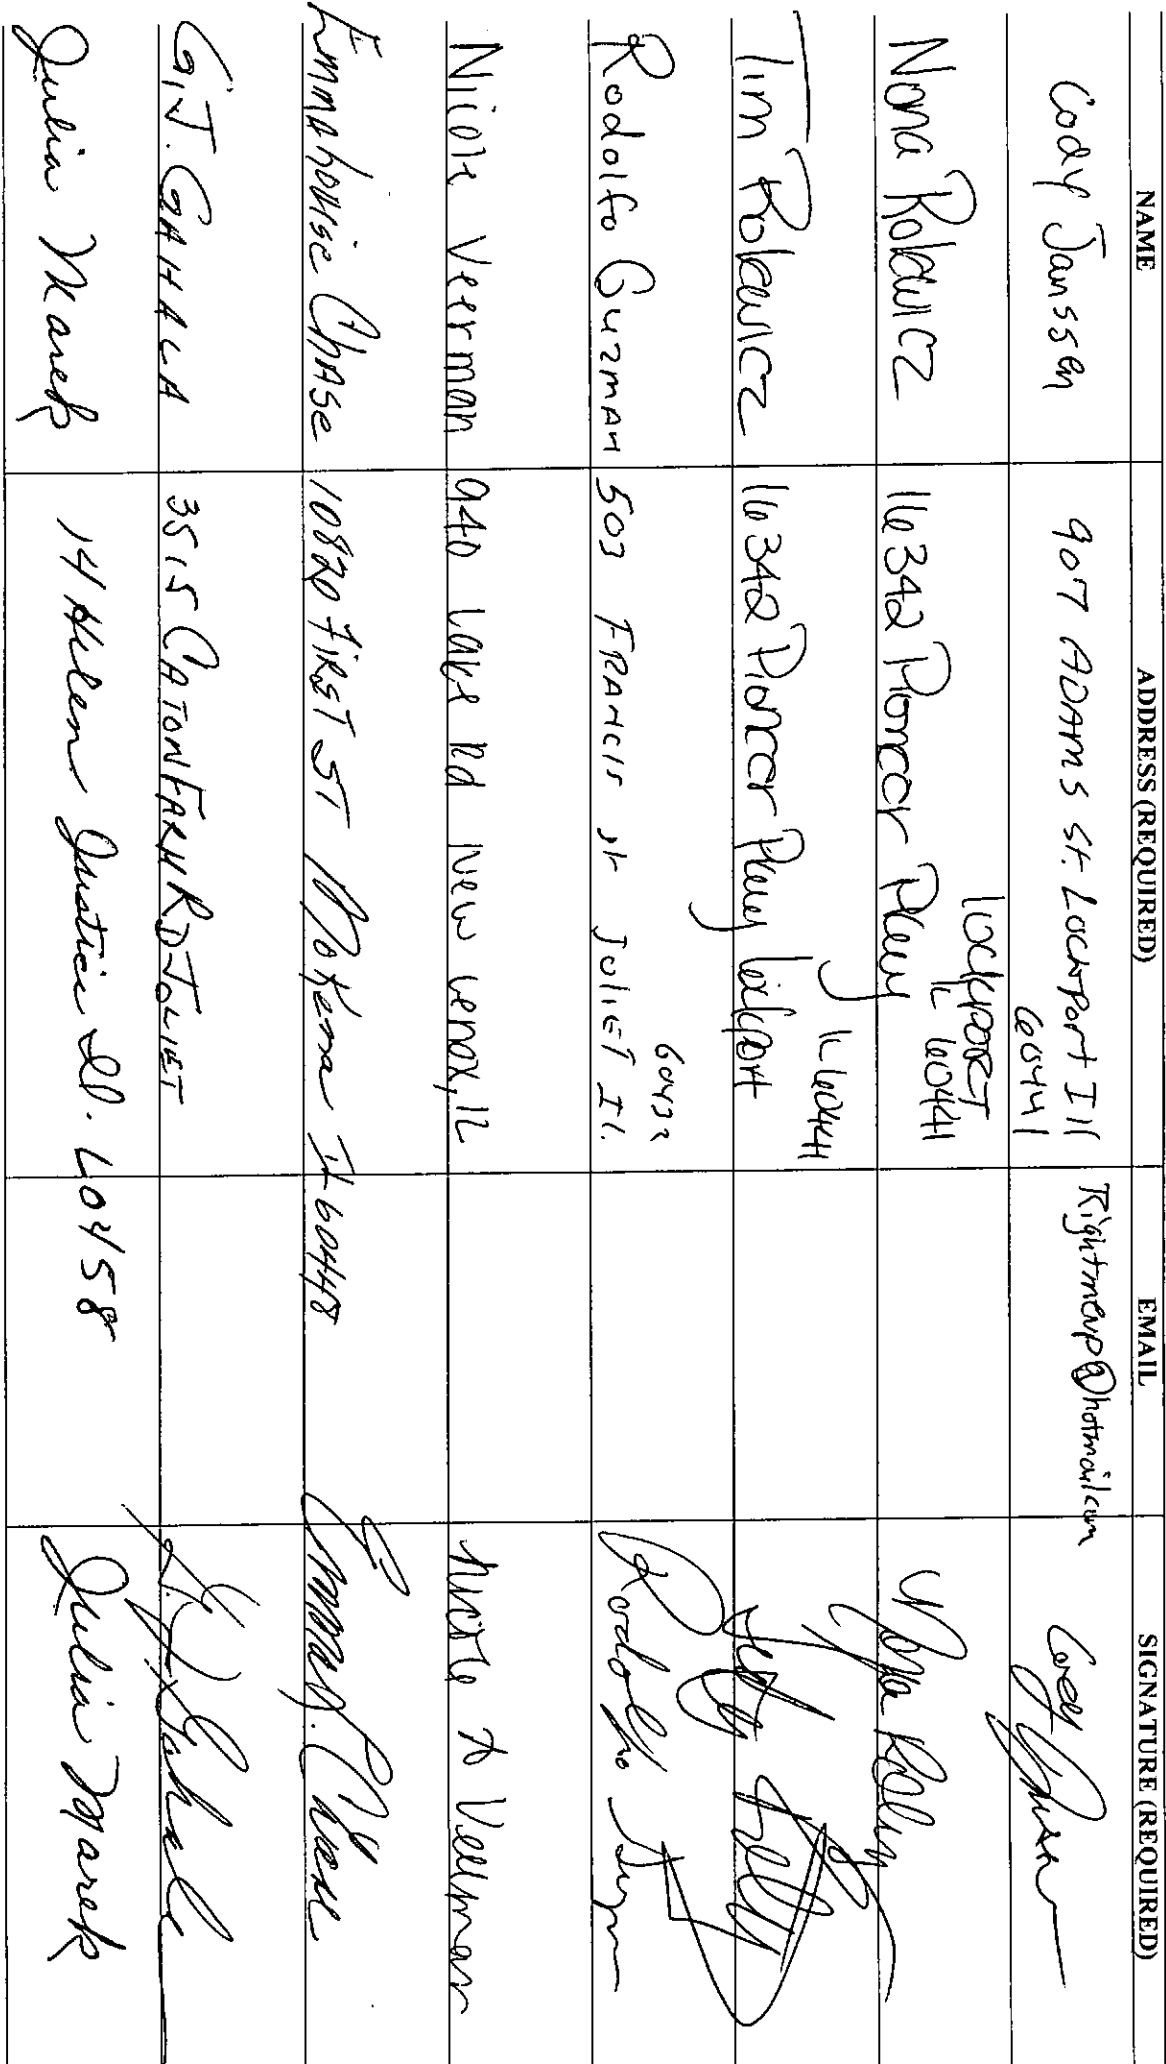 NAME ADDRESS (REQUIRED) EMAIL SIGNATURE (REQUIRED)
Cody Janssen 907 ADAMS St. LockPort Ill 60441 Rightmenp@hotmail.com
Nona Rolewicz 16342 Pioneer Pkwy Lockport IL 60441
Tim Rolewicz 16342 Pioneer Pkwy Lockport IL 60441
Rodolfo Guzman 503 FRANCIS st JoliET Il. 60432 Rodolfo
Nicole Veerman 940 Lake Rd New Lenox, IL Nicole A Veerman
Emmahouise Chase 10820 FiRST ST Mokena Il 60448 Emma Chase
G.J. GAHALA 3515 CATON FARM RD JOLIET G.J. Gahala
Julia Marek 14 Helen Justice Il. 60458 Julia Marek